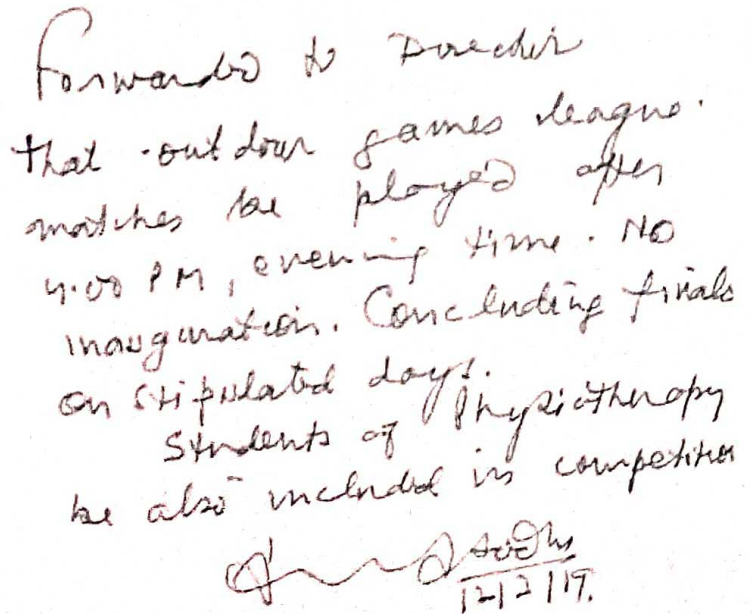 Forwarded to Director
that outdoor games league.
matches be played after
4.00 PM, evening time. NO
inauguration. Concluding finals
on stipulated days.
Students of Physiotherapy
be also included in competition
12/2/19.